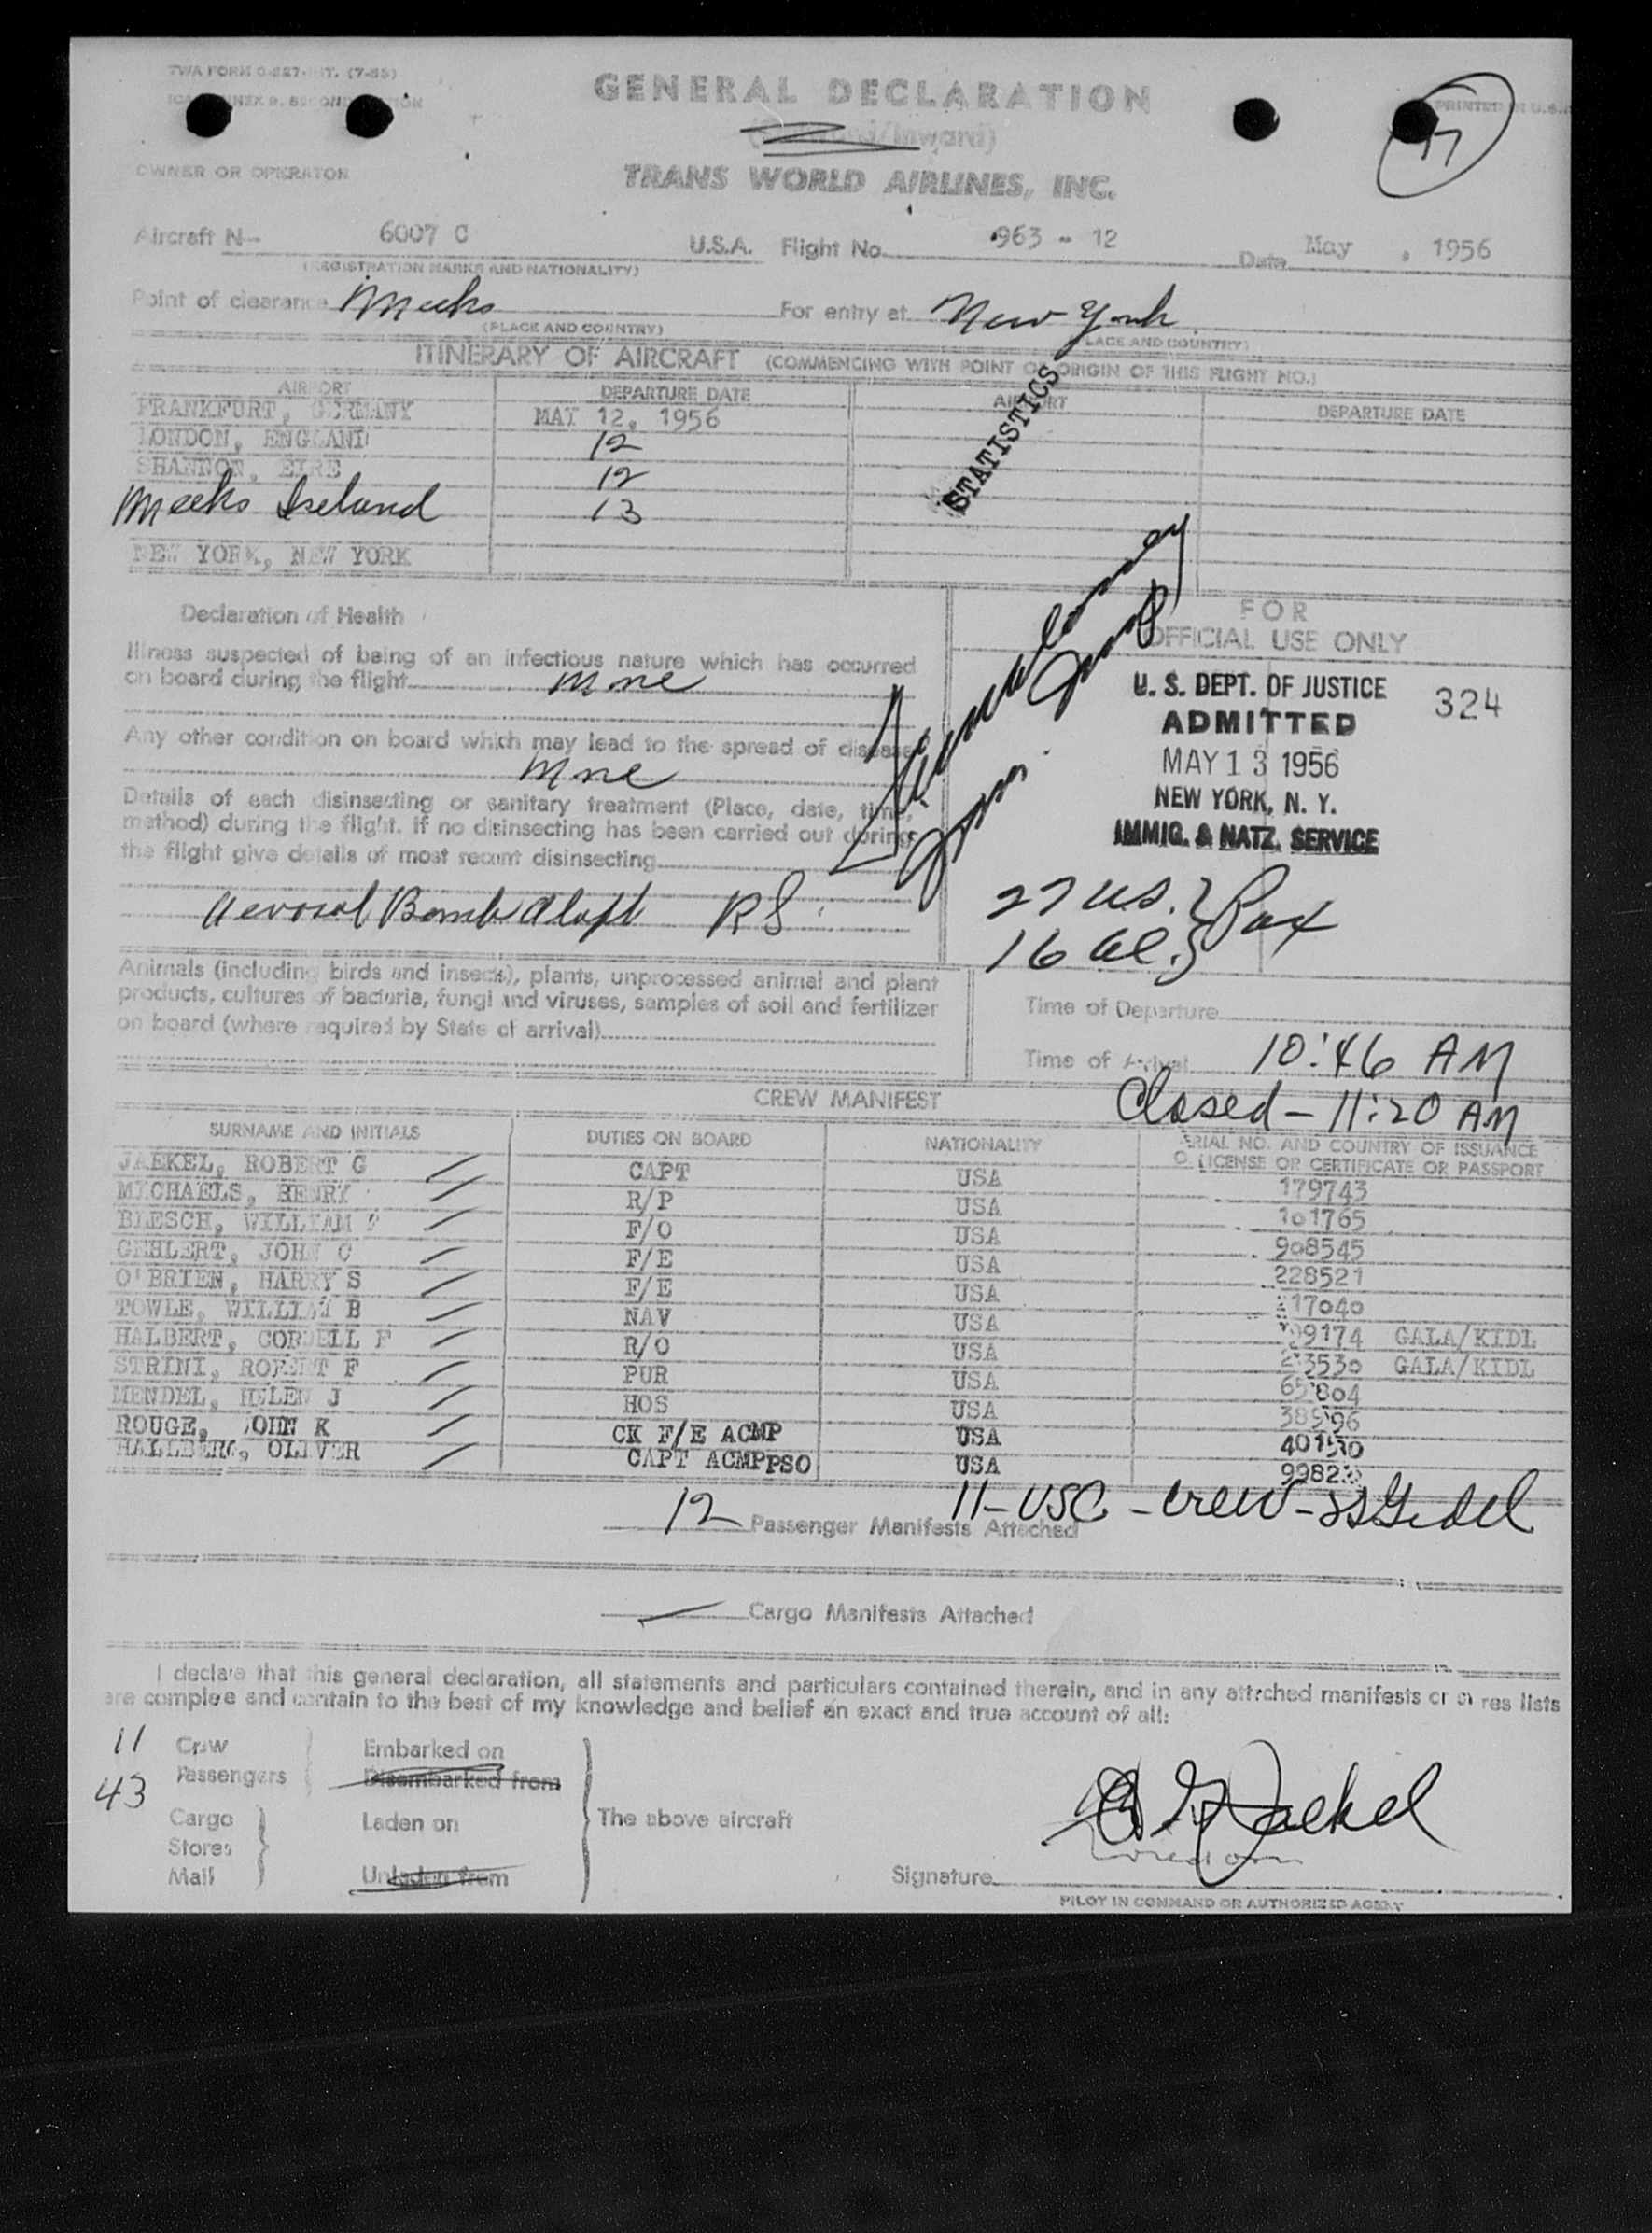 TWA FORM O-227-INT. (7-55)
GENERAL DECLARATION
PRINTED IN U.S.A.
(Outward/Inward)
17
OWNER OR OPERATOR
TRANS WORLD AIRLINES, INC.
Aircraft N- 6007 C U.S.A. Flight No. 963 - 12 Date May , 1956
(REGISTRATION MARKS AND NATIONALITY)
Point of clearance Meeks For entry at New York
(PLACE AND COUNTRY) (PLACE AND COUNTRY)
ITINERARY OF AIRCRAFT (COMMENCING WITH POINT OF ORIGIN OF THIS FLIGHT NO.)
AIRPORT DEPARTURE DATE AIRPORT DEPARTURE DATE
FRANKFURT, GERMANY MAY 12, 1956
LONDON, ENGLAND 12
SHANNON, EIRE 12
Meeks Iceland 13
NEW YORK, NEW YORK
STATISTICS
Declaration of Health
Illness suspected of being of an infectious nature which has occurred
on board during the flight None
Any other condition on board which may lead to the spread of disease
None
Details of each disinsecting or sanitary treatment (Place, date, time,
method) during the flight. If no disinsecting has been carried out during
the flight give details of most recent disinsecting
Aerosol Bomb Aloft RS
Animals (including birds and insects), plants, unprocessed animal and plant
products, cultures of bacteria, fungi and viruses, samples of soil and fertilizer
on board (where required by State of arrival)
FOR
OFFICIAL USE ONLY
U. S. DEPT. OF JUSTICE 324
ADMITTED
MAY 13 1956
NEW YORK, N. Y.
IMMIG. & NATZ. SERVICE
27 US. } Pax
16 Al. }
Time of Departure
Time of Arrival 10:46 AM
Closed - 11:20 AM
CREW MANIFEST
SURNAME AND INITIALS DUTIES ON BOARD NATIONALITY SERIAL NO. AND COUNTRY OF ISSUANCE
OF LICENSE OR CERTIFICATE OR PASSPORT
JAEKEL, ROBERT G CAPT USA 179743
MICHAELS, HENRY R/P USA 101765
BLESCH, WILLIAM F F/O USA 908545
OEHLERT, JOHN C F/E USA 228521
O'BRIEN, HARRY S F/E USA 17040
TOWLE, WILLIAM B NAV USA 99174 GALA/KIDL
HALBERT, CORDELL F R/O USA 23530 GALA/KIDL
STRINI, ROBERT F PUR USA 65804
MENDEL, HELEN J HOS USA
ROUGE, JOHN K CK F/E ACMP USA
HALLBERG, OLIVER CAPT ACMPPSO USA
11-USC - crew -
12 Passenger Manifests Attached
Cargo Manifests Attached
I declare that this general declaration, all statements and particulars contained therein, and in any attached manifests or stores lists
are complete and contain to the best of my knowledge and belief an exact and true account of all:
11 Crew Embarked on
43 Passengers Disembarked from
Cargo Laden on The above aircraft
Stores
Mail Unladen from
Signature R G Jaekel
PILOT IN COMMAND OR AUTHORIZED AGENT